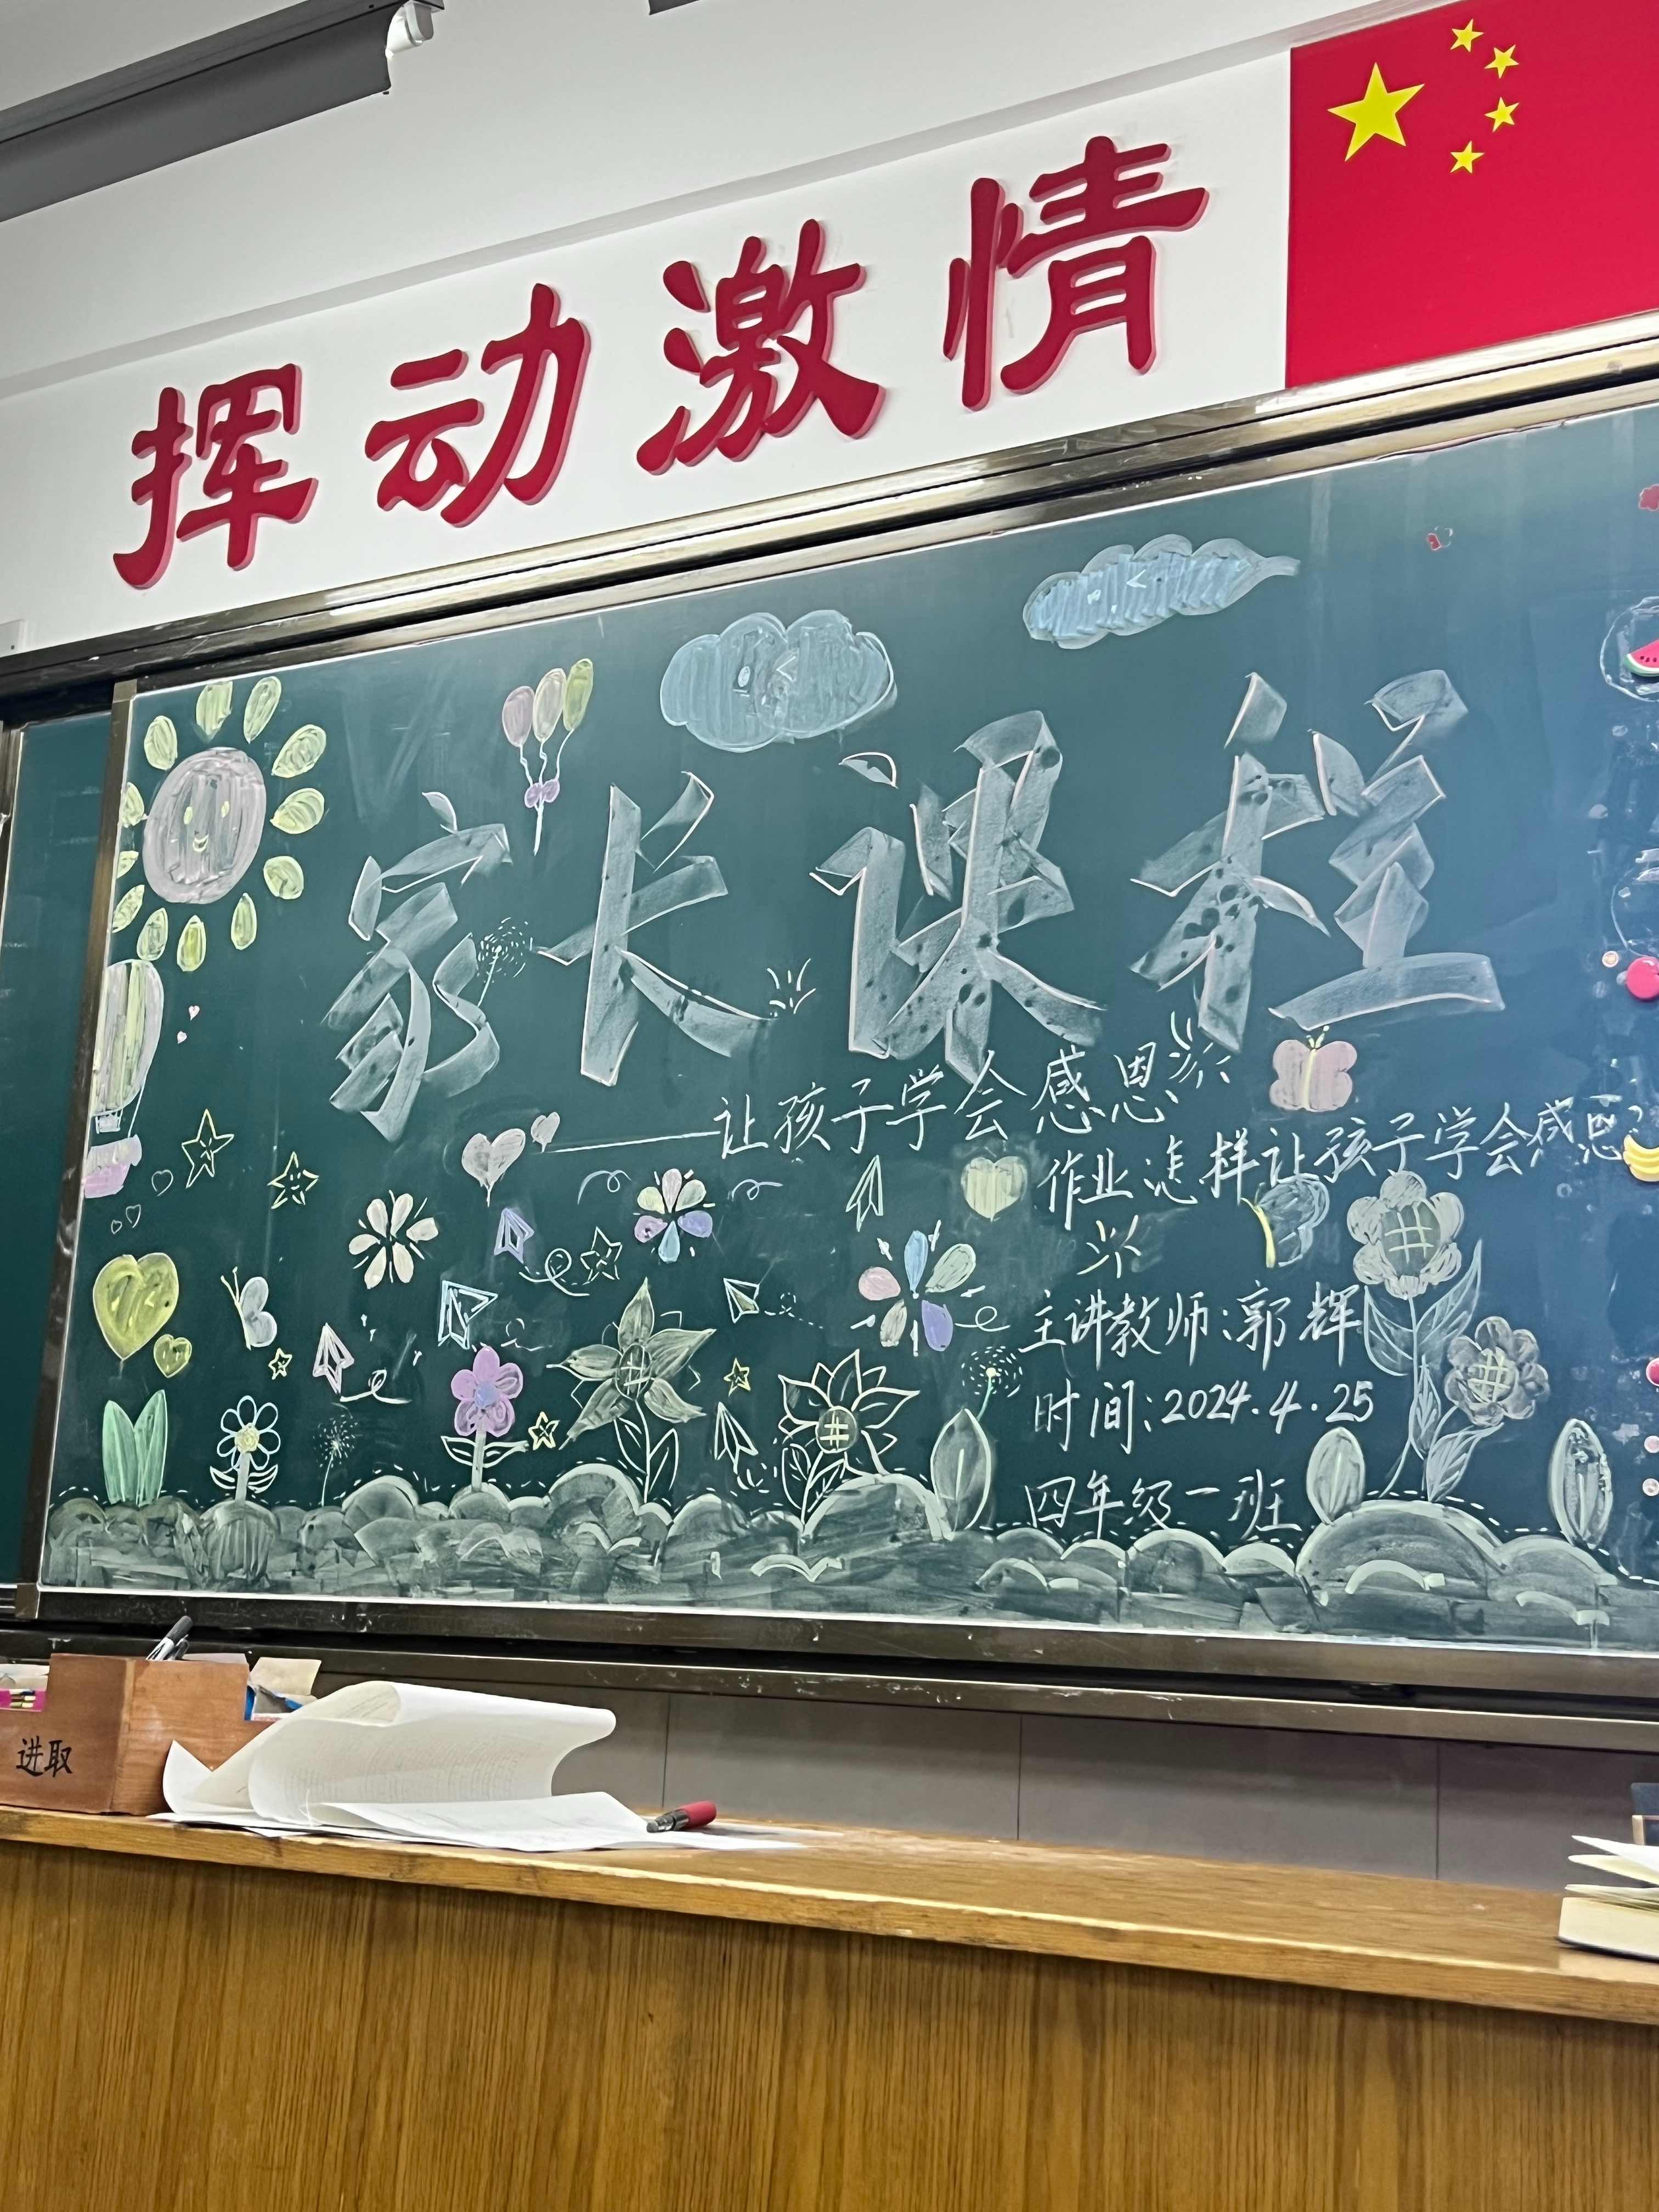 挥动激情
家长课程
——让孩子学会感恩
作业:怎样让孩子学会感恩?
主讲教师:郭辉
时间:2024.4.25
四年级一班
进取